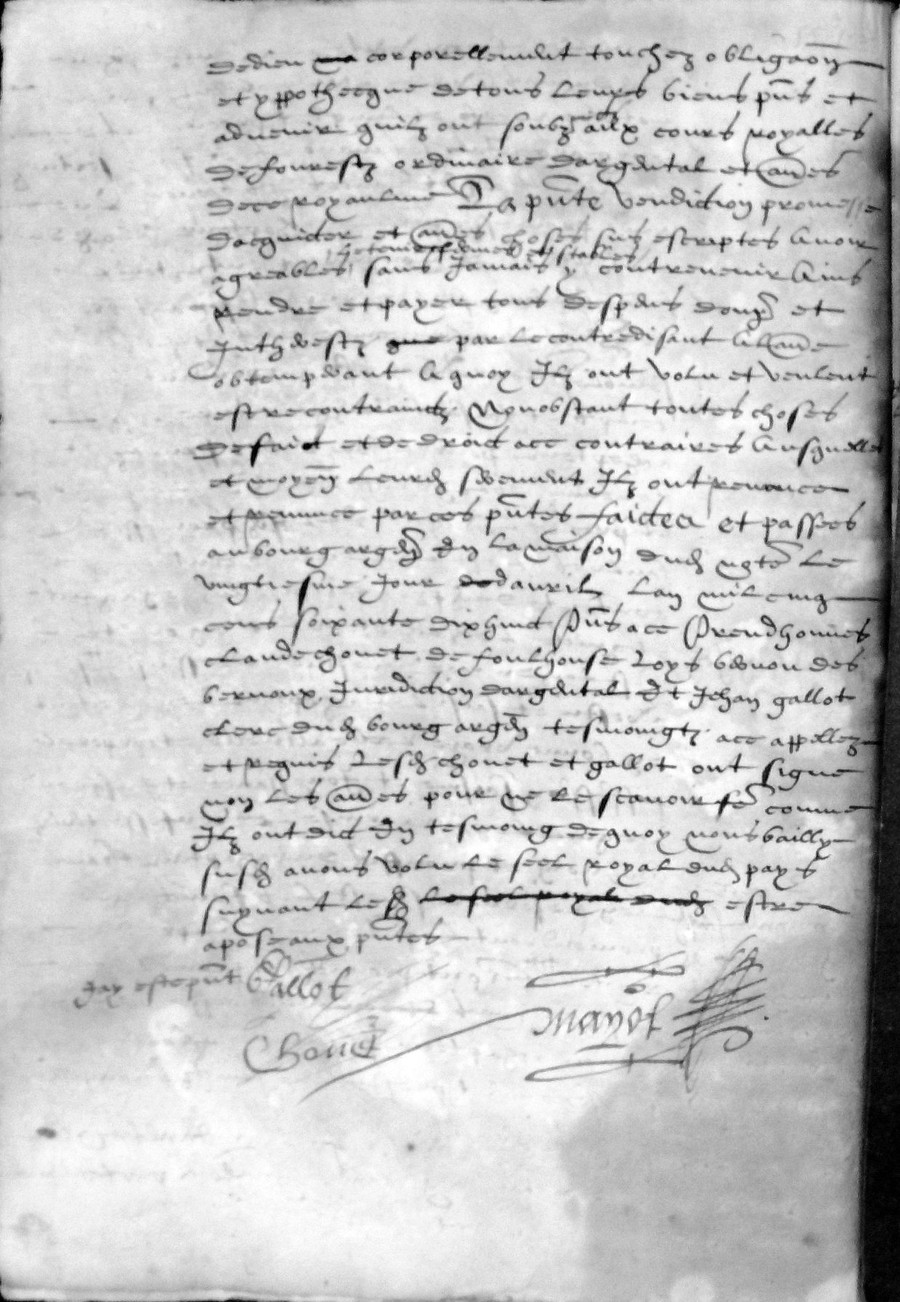 de dieu corporellement touchez obligaon
et yppothecque de tous leurs biens pnts et
advenir quilz ont soubz aux cours royalles
de fourestz ordinaire dargental et aues
de ce royaulme La pnte vendicion promesse
dacquicter et aues choses sus escriptes avoir
fermes et stables
agreables sans Jamais y contrevenir Ains
rendre et payer tous despens domj et
Inthrestz par le contredisant a laue
obtemperant a quoy Ilz ont volu et veulent
estre contrainctz Nonobstant toutes choses
de faict et de droict ace contraires Ausquelles
et moyen leurd serement Ilz ont renonce
et renonce par ces pntes faictes et passees
au bourg argen En la maison dud le
vingtiesme Jour davril Lan mil cinq
cens soixante dixhuict pns ace preudhomes
claude chovet de foulhouse Loys des
bernaux Juridiction dargental Et Jehan gallot
clerc dud bourg argen tesmoingtz ace appellez
et requis Lesd chovet et gallot ont signe
non les aues pour ne le scavoir fe comme
Ilz ont dict En tesmoing de quoy nous bailly
susd avons volu le scel royal dud pays
suyvant led estre
apose aux pntes
Jay este pnt Gallot
Mayol
Chovet